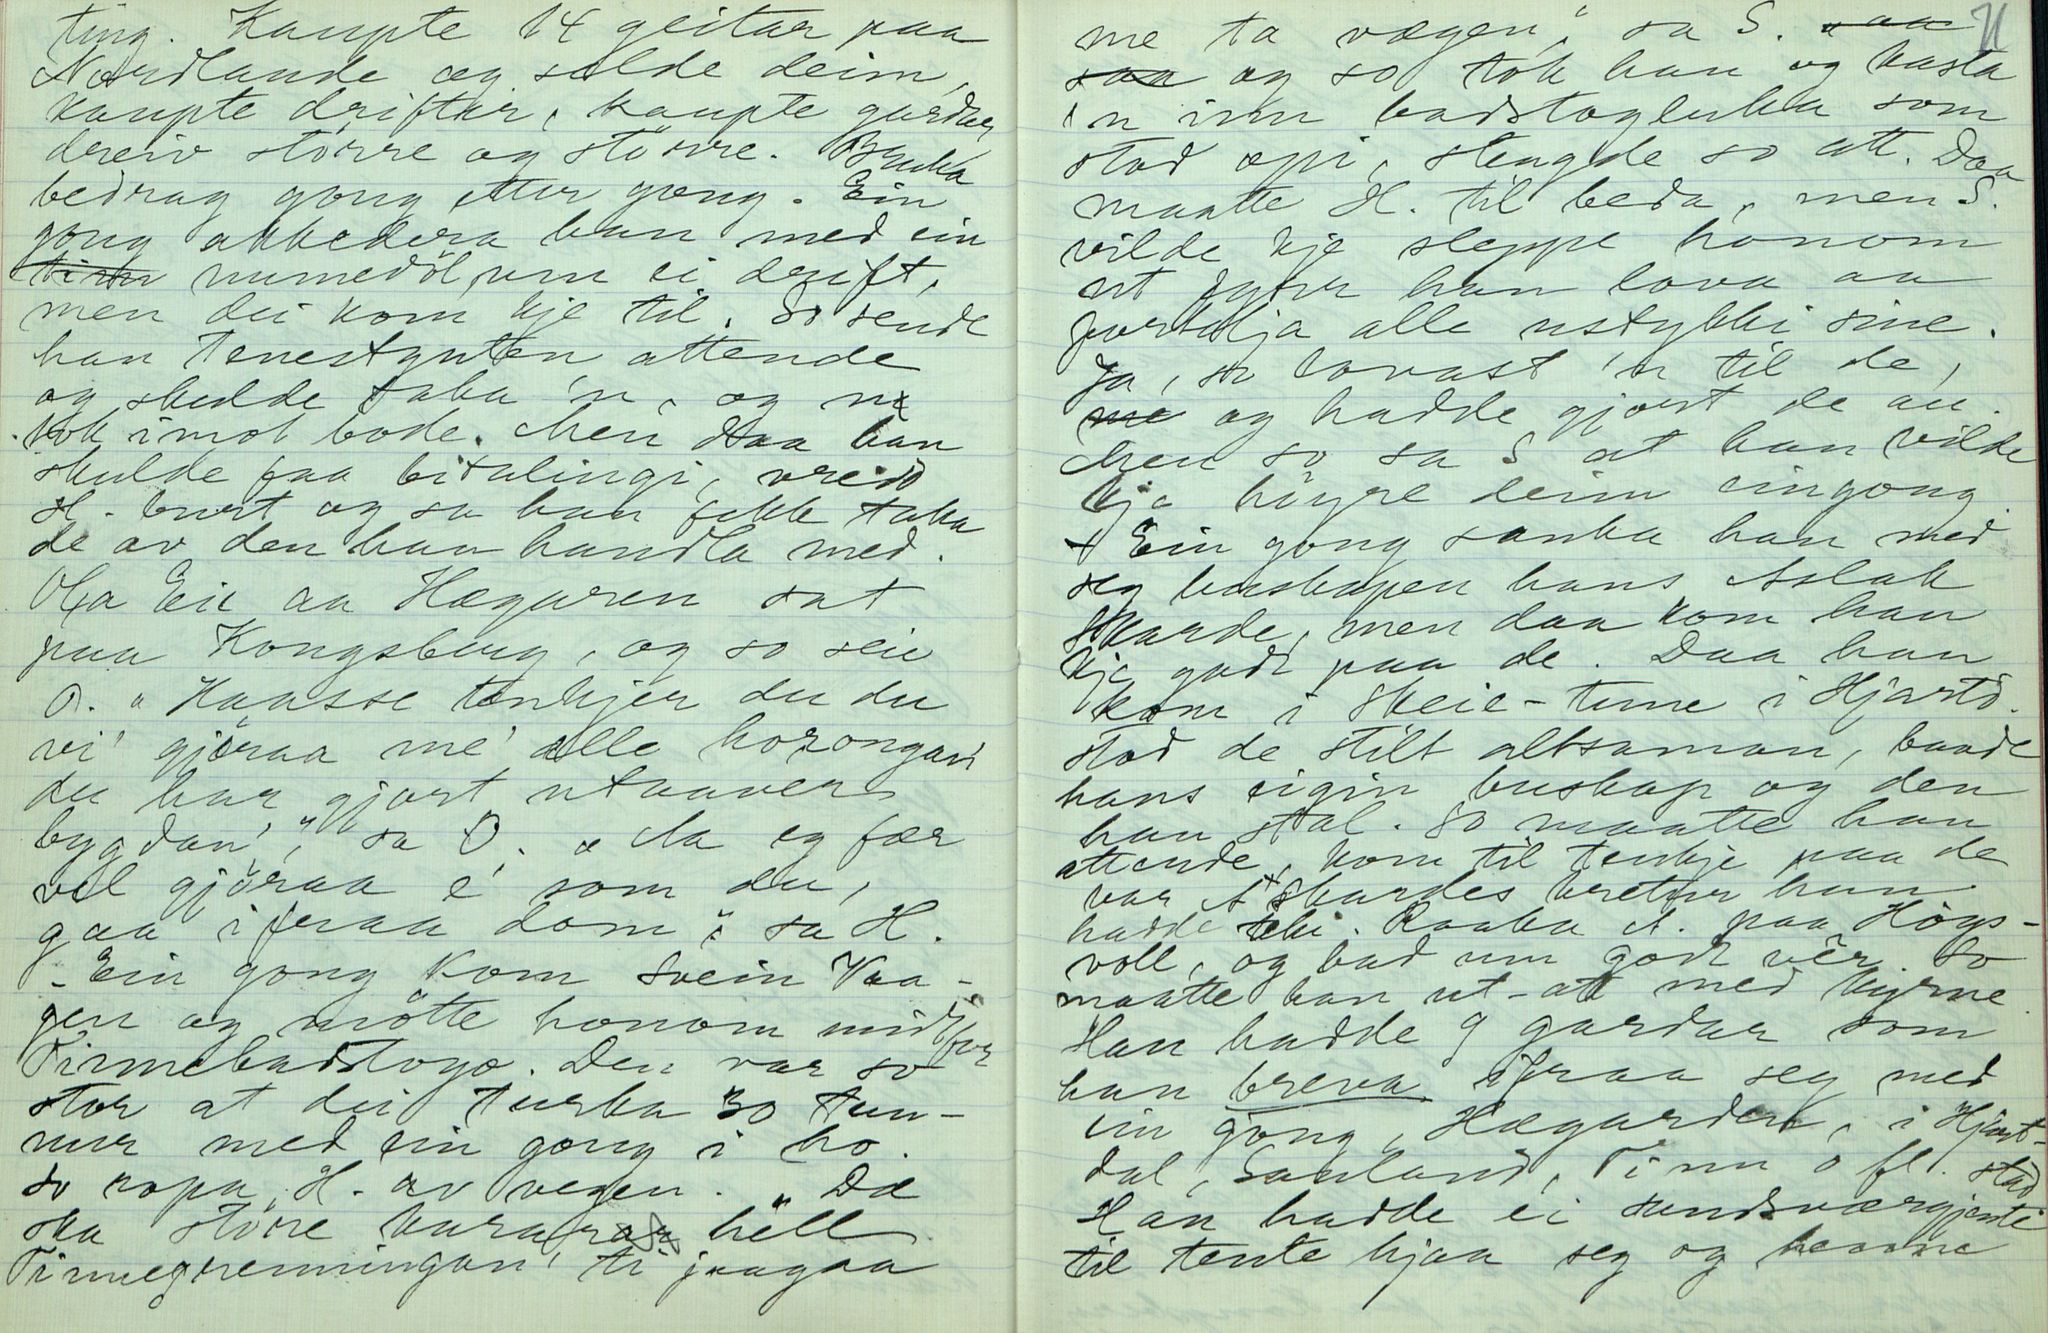 ting. Kaupte 14 geitar paa
Nordlande og selde deim,
kaupte drifter, kaupte gardar
dreiv större og större. Bruka
bedrag gong etter gong. Ein
gong akkedera han med ein
numedöl um ei drift,
men dei kom kje til. So sende
han tenestguten attende
og skulde taka 'n, og
tok imot bode. Men daa han
skulde faa betalingi, vreid
H. burt og sa han fekk taka
de av den han handla med.
Ola Eie aa Hægaren sat
paa Kongsberg, og so seie
O. "Kaasse tenkjer du du
vi' gjöraa me' alle horongan'
du har gjort utaaver
bygdan'," sa O. "Aa eg fær
vel gjöraa e' som du,
gaa ifraa dom" sa H.
- Ein gong kom Svein Vaa-
gen og mötte honom midt for
Tinnebadstogo. Den var so
stor at dei turka 30 tun-
nur med ein gong i ho.
So ropa H. av vegen. "Dæ
ska större karar hell
Tinnegrenningan' ti jaagaa
me ta vægen," sa S. saa
saa og so tok han og kasta
'n inn badstogluka som
stod opi, stengde so att. Daa
maatte H. til beda, men S.
vilde kje sleppe honom
ut fyrr han lova aa
fortelja alle ustykki sine.
Ja, so lovast 'n til de,
me og hadde gjort de au.
Men so sa S at han vilde
kje höyre deim eingong.
+ Ein gong sanka han med
seg buskapen hans Aslak
Skarde, men daa kom han
kje godt paa de. Daa han
kom i Skeie-tune i Hjartd.
stod de stilt altsaman, baade
hans eigin buskap og den
han stal. So maatte han
attende, kom til tenkje paa de
var A Skardes kretur han
hadde teki. Raaka A. paa Högs-
voll, og bad um godt vêr. So
maatte han ut-att med kyrne
Han hadde 9 gardar som
han breva ifraa seg med
ein gong, Hægarden, i Hjart-
dal, Sauland, Tinn o fl. stad
Han hadde ei sandsværgjente
til tente hjaa seg og